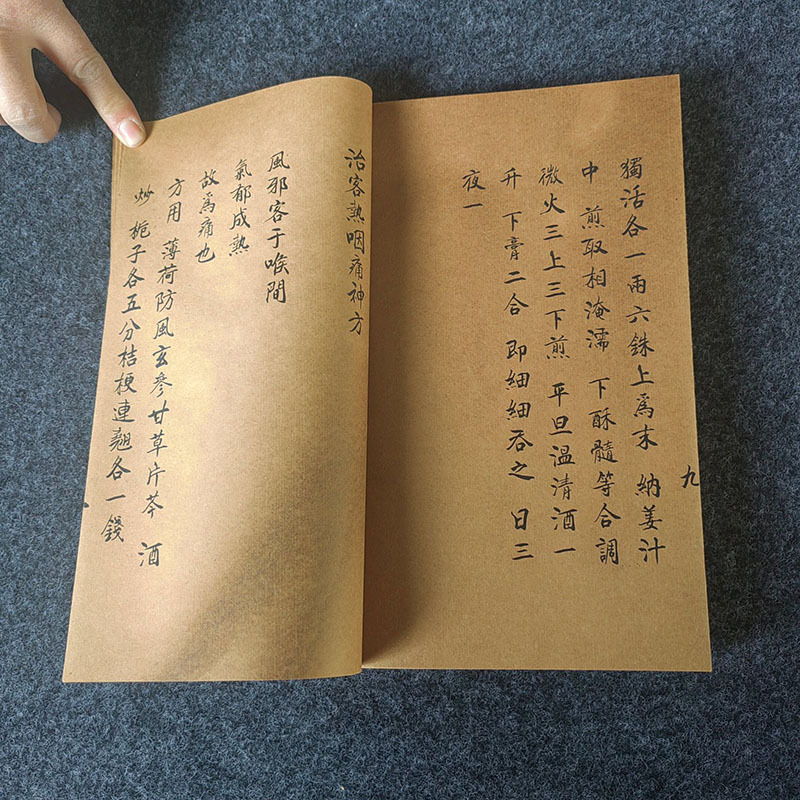 九
獨活各一兩六銖上爲末 納姜汁
中 煎取相淹濡 下酥髓等合調
微火三上三下煎 平旦温清酒一
升 下膏二合 即細細吞之 日三
夜一
治客熱咽痛神方
風邪客于喉間
氣郁成熱
故爲痛也
方用 薄荷防風玄參甘草片芩 酒
炒 栀子各五分桔梗連翹各一錢